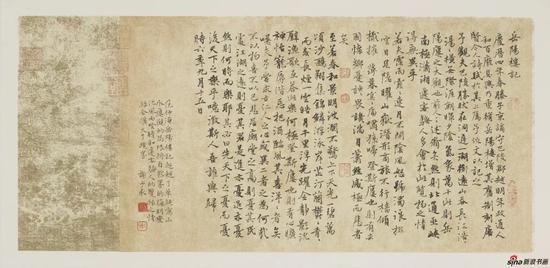 岳陽樓記
慶曆四年春滕子京謫守巴陵郡越明年政通人
和百廢具興乃重修岳陽樓增其舊制刻唐
賢今人詩賦於其上屬予作文以記之
予觀夫巴陵勝狀在洞庭一湖銜遠山吞長江浩浩
湯湯橫無際涯朝暉夕陰氣象萬千此則岳
陽樓之大觀也前人之述備矣然則北通巫峽
南極瀟湘遷客騷人多會於此覽物之情
得無異乎
若夫霪雨霏霏連月不開陰風怒號濁浪排
空日星隱耀山岳潛形商旅不行檣傾
楫摧薄暮冥冥虎嘯猿啼登斯樓也則有去
國懷鄉憂讒畏譏滿目蕭然感極而悲者
矣
至若春和景明波瀾不驚上下天光一碧萬
頃沙鷗翔集錦鱗游泳岸芷汀蘭郁郁青青
而或長煙一空皓月千里浮光躍金靜影沉
璧漁歌互答此樂何極登斯樓也則有心曠
神怡寵辱皆忘把酒臨風其喜洋洋者矣
嗟夫予嘗求古仁人之心或異二者之為何哉
不以物喜不以己悲居廟堂之高則憂其民
處江湖之遠則憂其君是進亦憂退亦憂
然則何時而樂耶其必曰先天下之憂而憂
後天下之樂而樂歟噫微斯人吾誰與歸
時六年九月十五日
sina 新浪书画